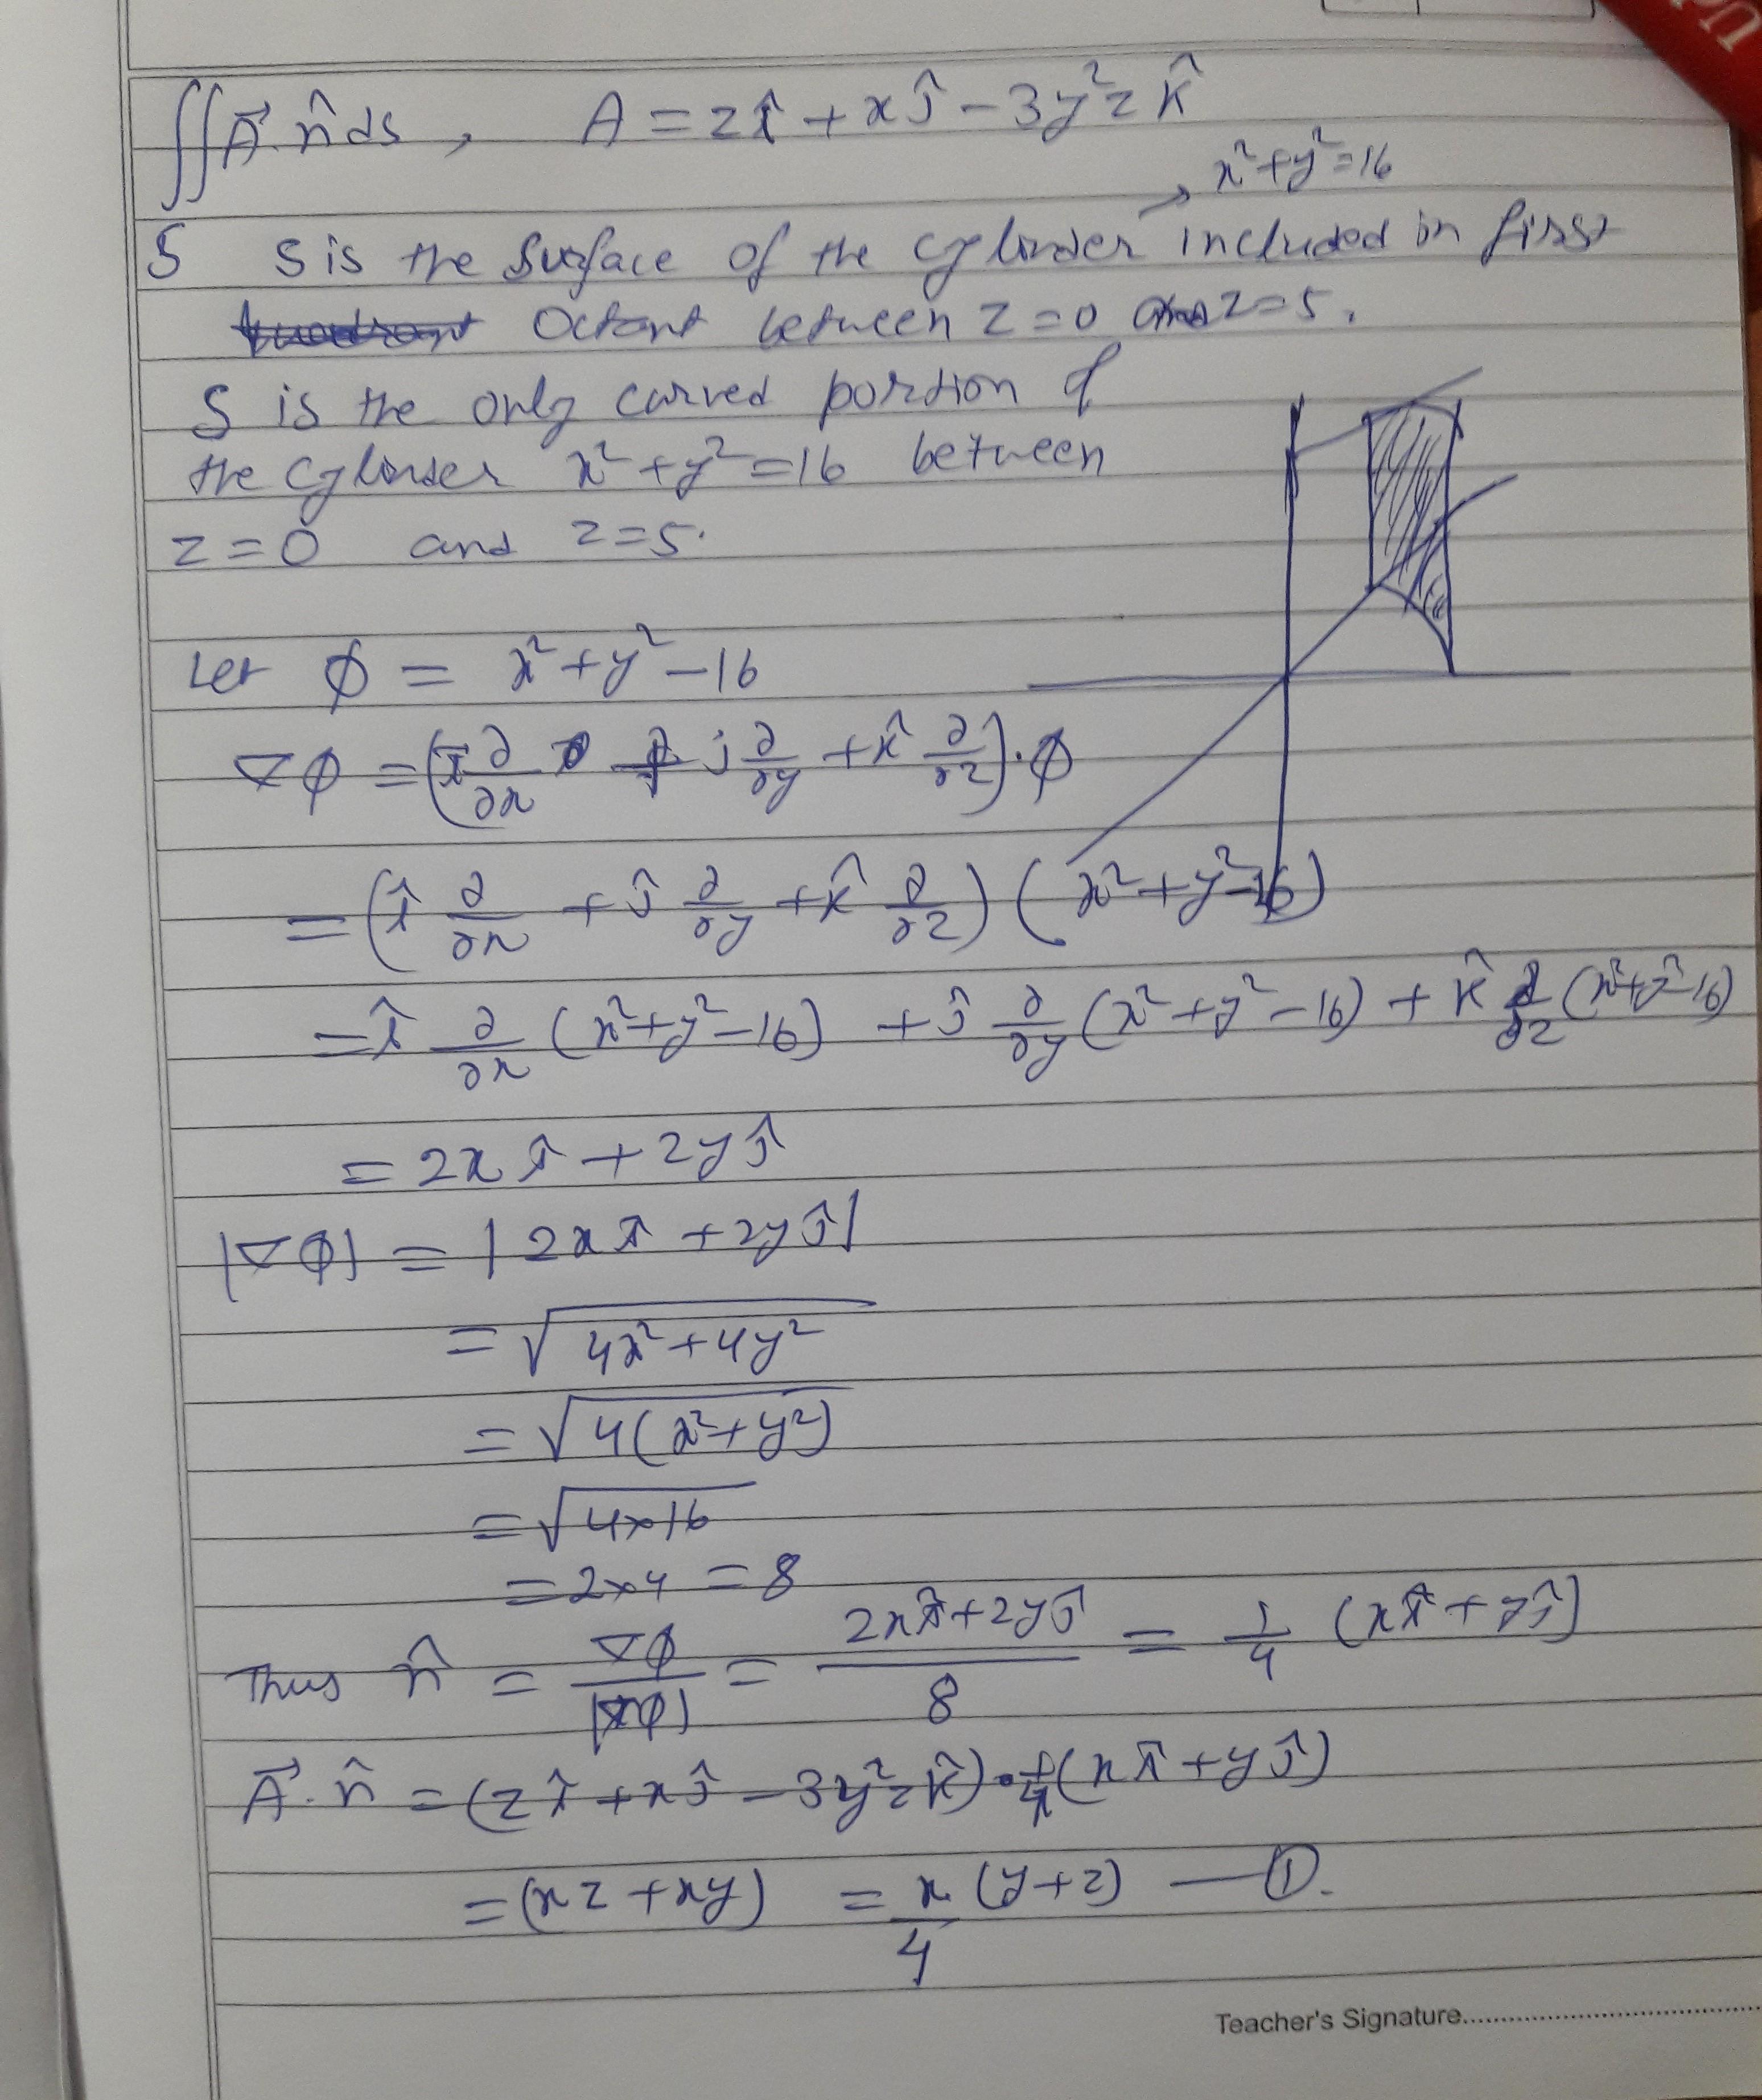 ∬A⃗.n̂ds, A = zî + xĵ - 3y²z k̂
→ x²+y²=16
S S is the surface of the cylinder included in first
Octant between z=0 and z=5.
S is the only curved portion of
the cylinder x²+y²=16 between
z=0 and z=5.
Let ϕ = x²+y²-16
∇ϕ = (î ∂/∂x + j ∂/∂y + k̂ ∂/∂z).ϕ
= (î ∂/∂x + ĵ ∂/∂y + k̂ ∂/∂z) (x²+y²-16)
= î ∂/∂x (x²+y²-16) + ĵ ∂/∂y (x²+y²-16) + k̂ ∂/∂z (x²+y²-16)
= 2x î + 2y ĵ
|∇ϕ| = |2x î + 2y ĵ|
= √(4x²+4y²)
= √(4(x²+y²))
= √(4×16)
= 2×4 = 8
Thus n̂ = ∇ϕ/|∇ϕ| = (2xî+2yĵ)/8 = 1/4 (xî + yĵ)
A⃗.n̂ = (zî + xĵ - 3y²z k̂)·1/4(xî + yĵ)
= (xz + xy) = x/4 (y+z) — ①.
Teacher's Signature